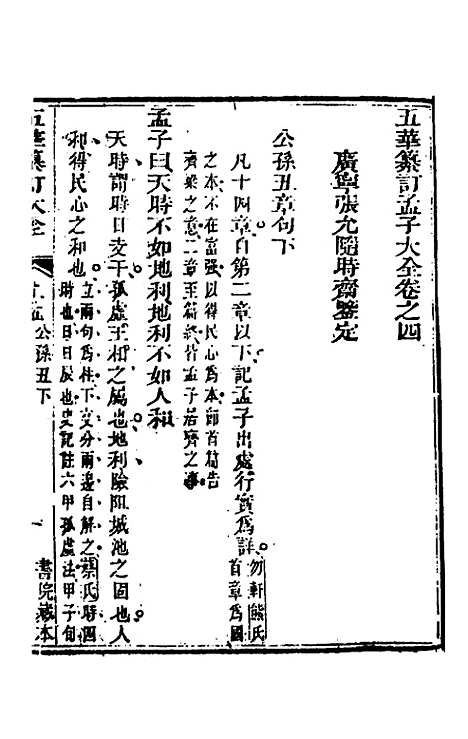 五華纂訂孟子大全卷之四
廣寧張允隨時齋鑒定
公孫丑章句下
凡十四章自第二章以下記孟子出處行實爲詳勿軒熊氏
首章爲國
之本不在富强以得民心爲本節首篇告
齊梁之意二章至篇終皆孟子居齊之事
孟子曰天時不如地利地利不如人和
天時謂時日支干孤虛王相之屬也地利險阻城池之固也人
和得民心之和也
立兩句爲柱下文分兩邊自解之蔡氏時四
時也日日辰也史記註六甲孤虛法甲子旬
五華纂訂大全
上孟公孫丑下
一
書院藏本